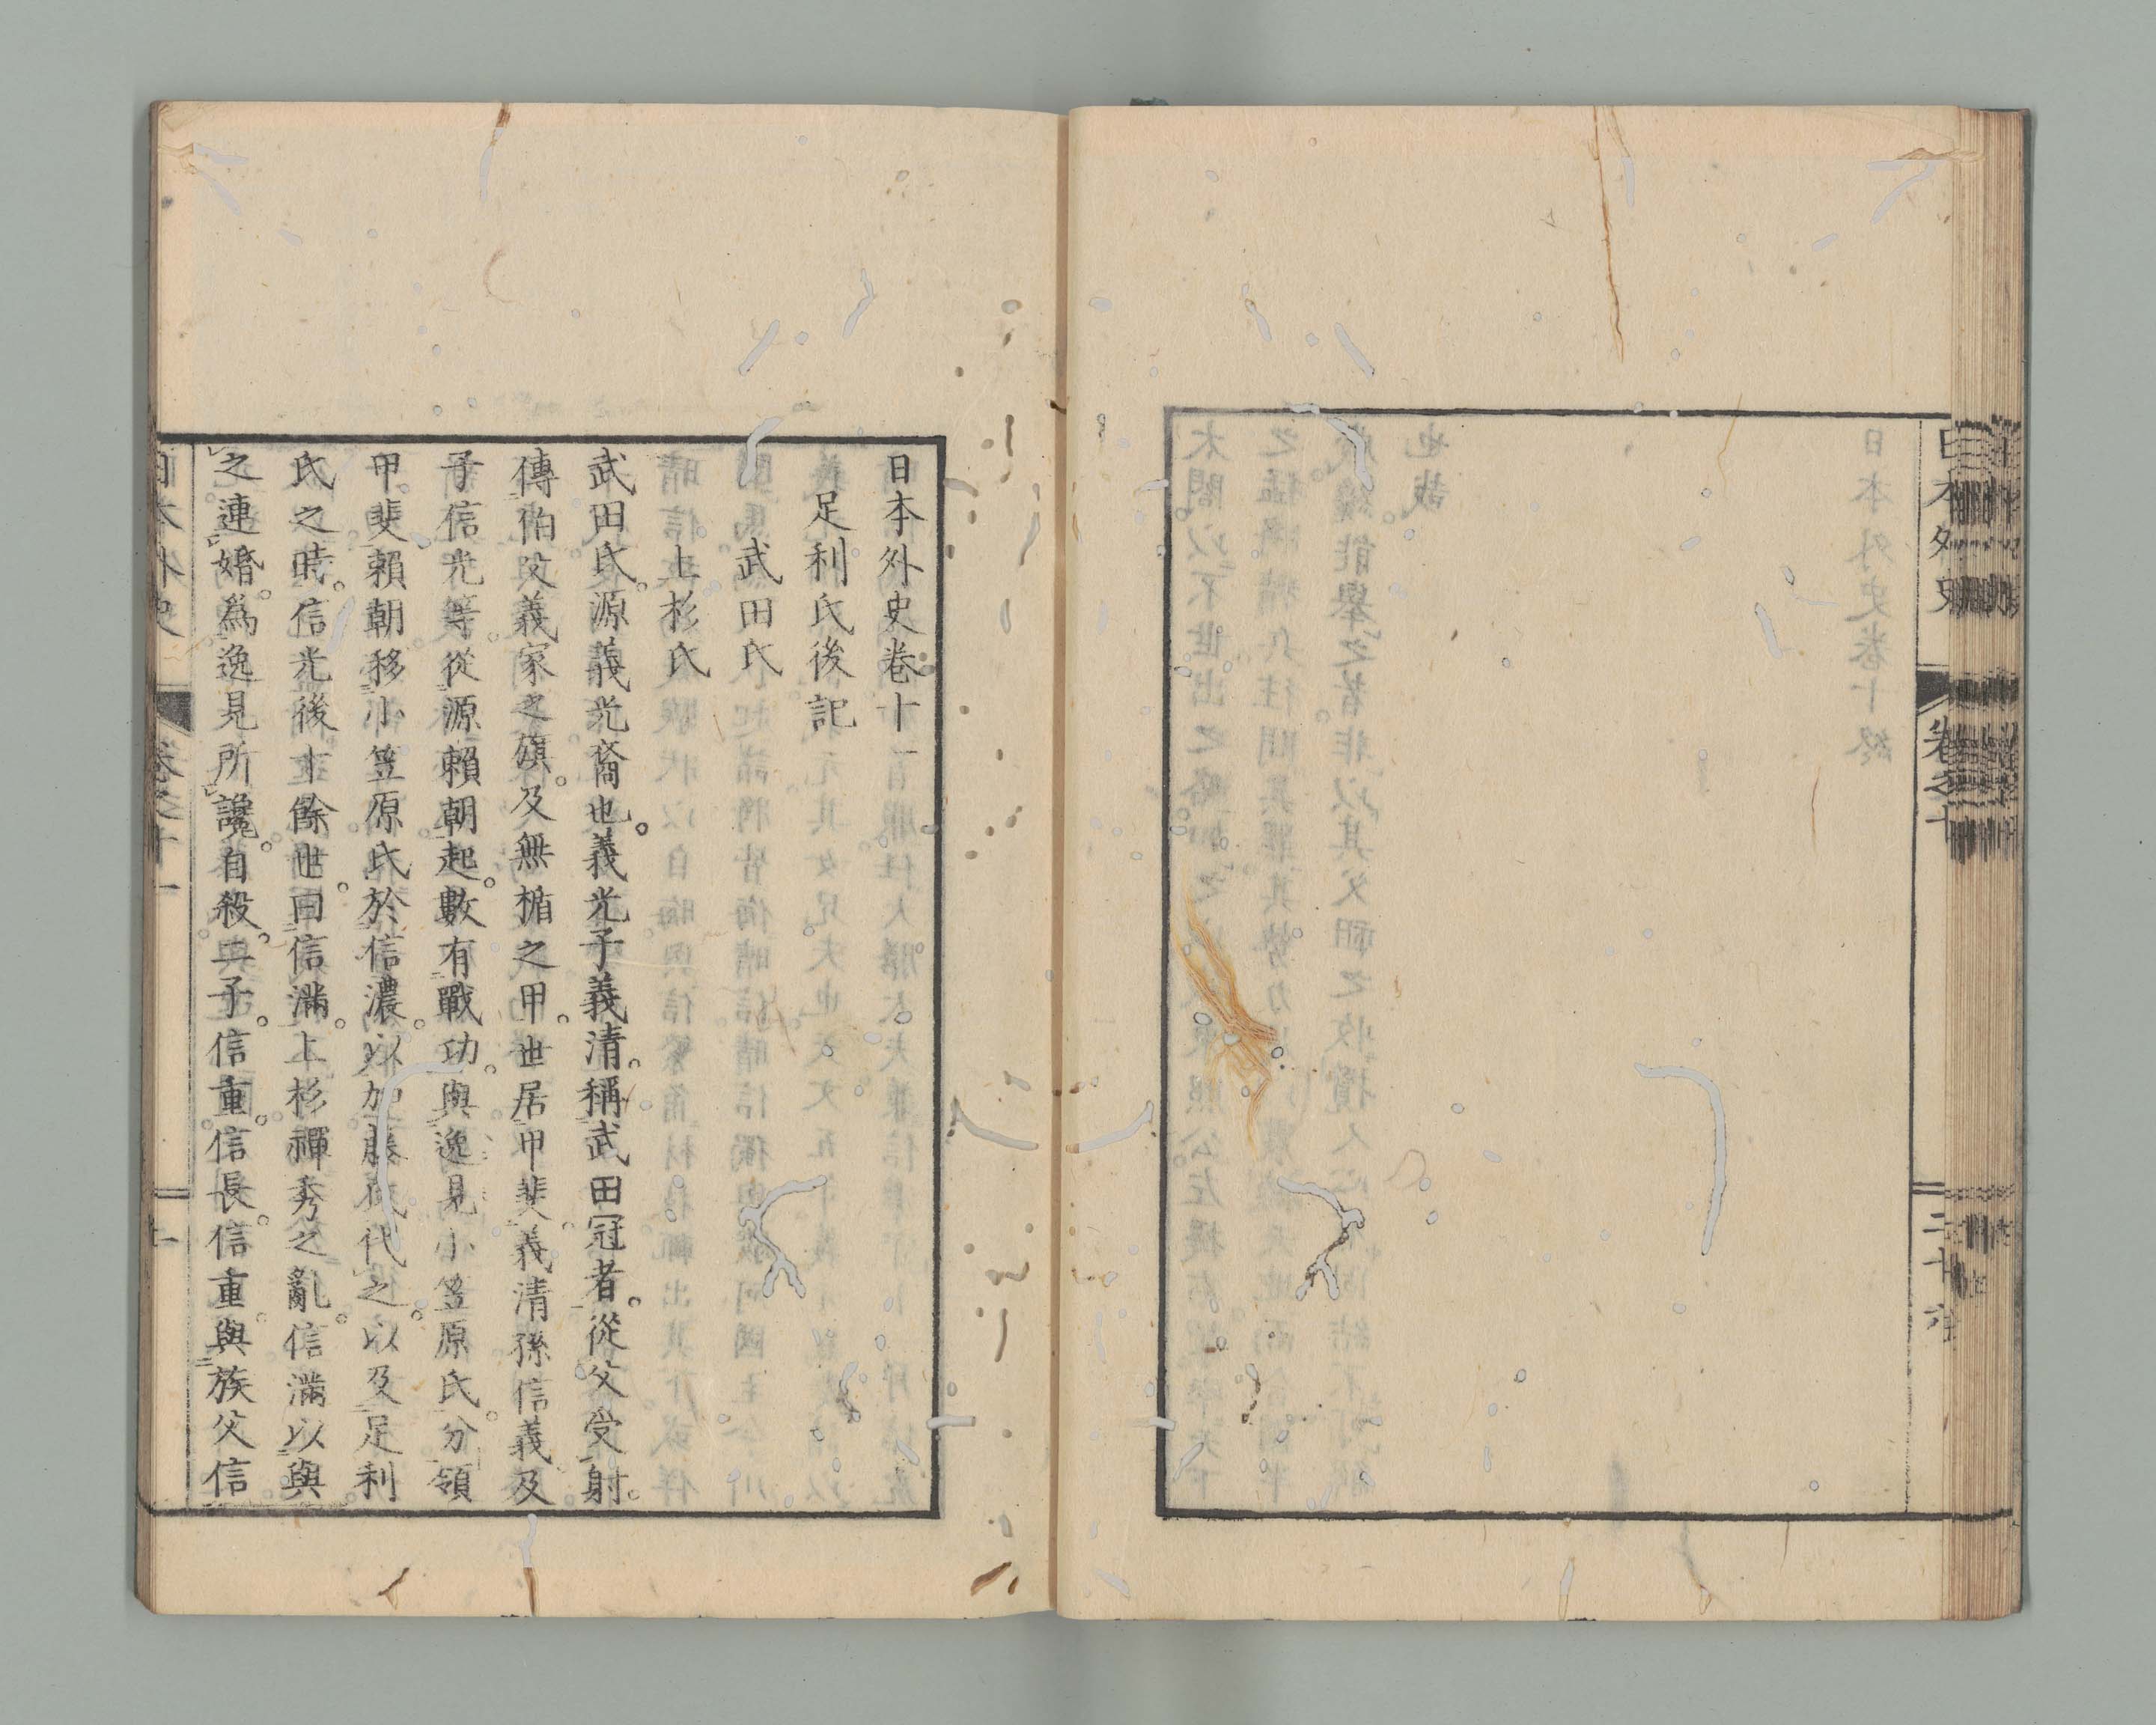 日本外史
卷之十
二十六
日本外史卷十一
足利氏後記
武田氏
上杉氏
武田氏。源義光裔也。義光子義清。稱武田冠者。從父受射。
傳伯父義家之旗。及無楯之甲。世居甲斐。義清孫信義及
子信光等。從源賴朝起。數有戰功。與逸見小笠原氏。分領
甲斐。賴朝移小笠原氏於信濃。以加藤氏代之。以及足利
氏之時。信光後十餘世。曰信滿。上杉禪秀之亂。信滿以與
之連婚。爲逸見所讒。自殺。二子。信重。信長。信重與族父信
日本外史
卷之十一
一